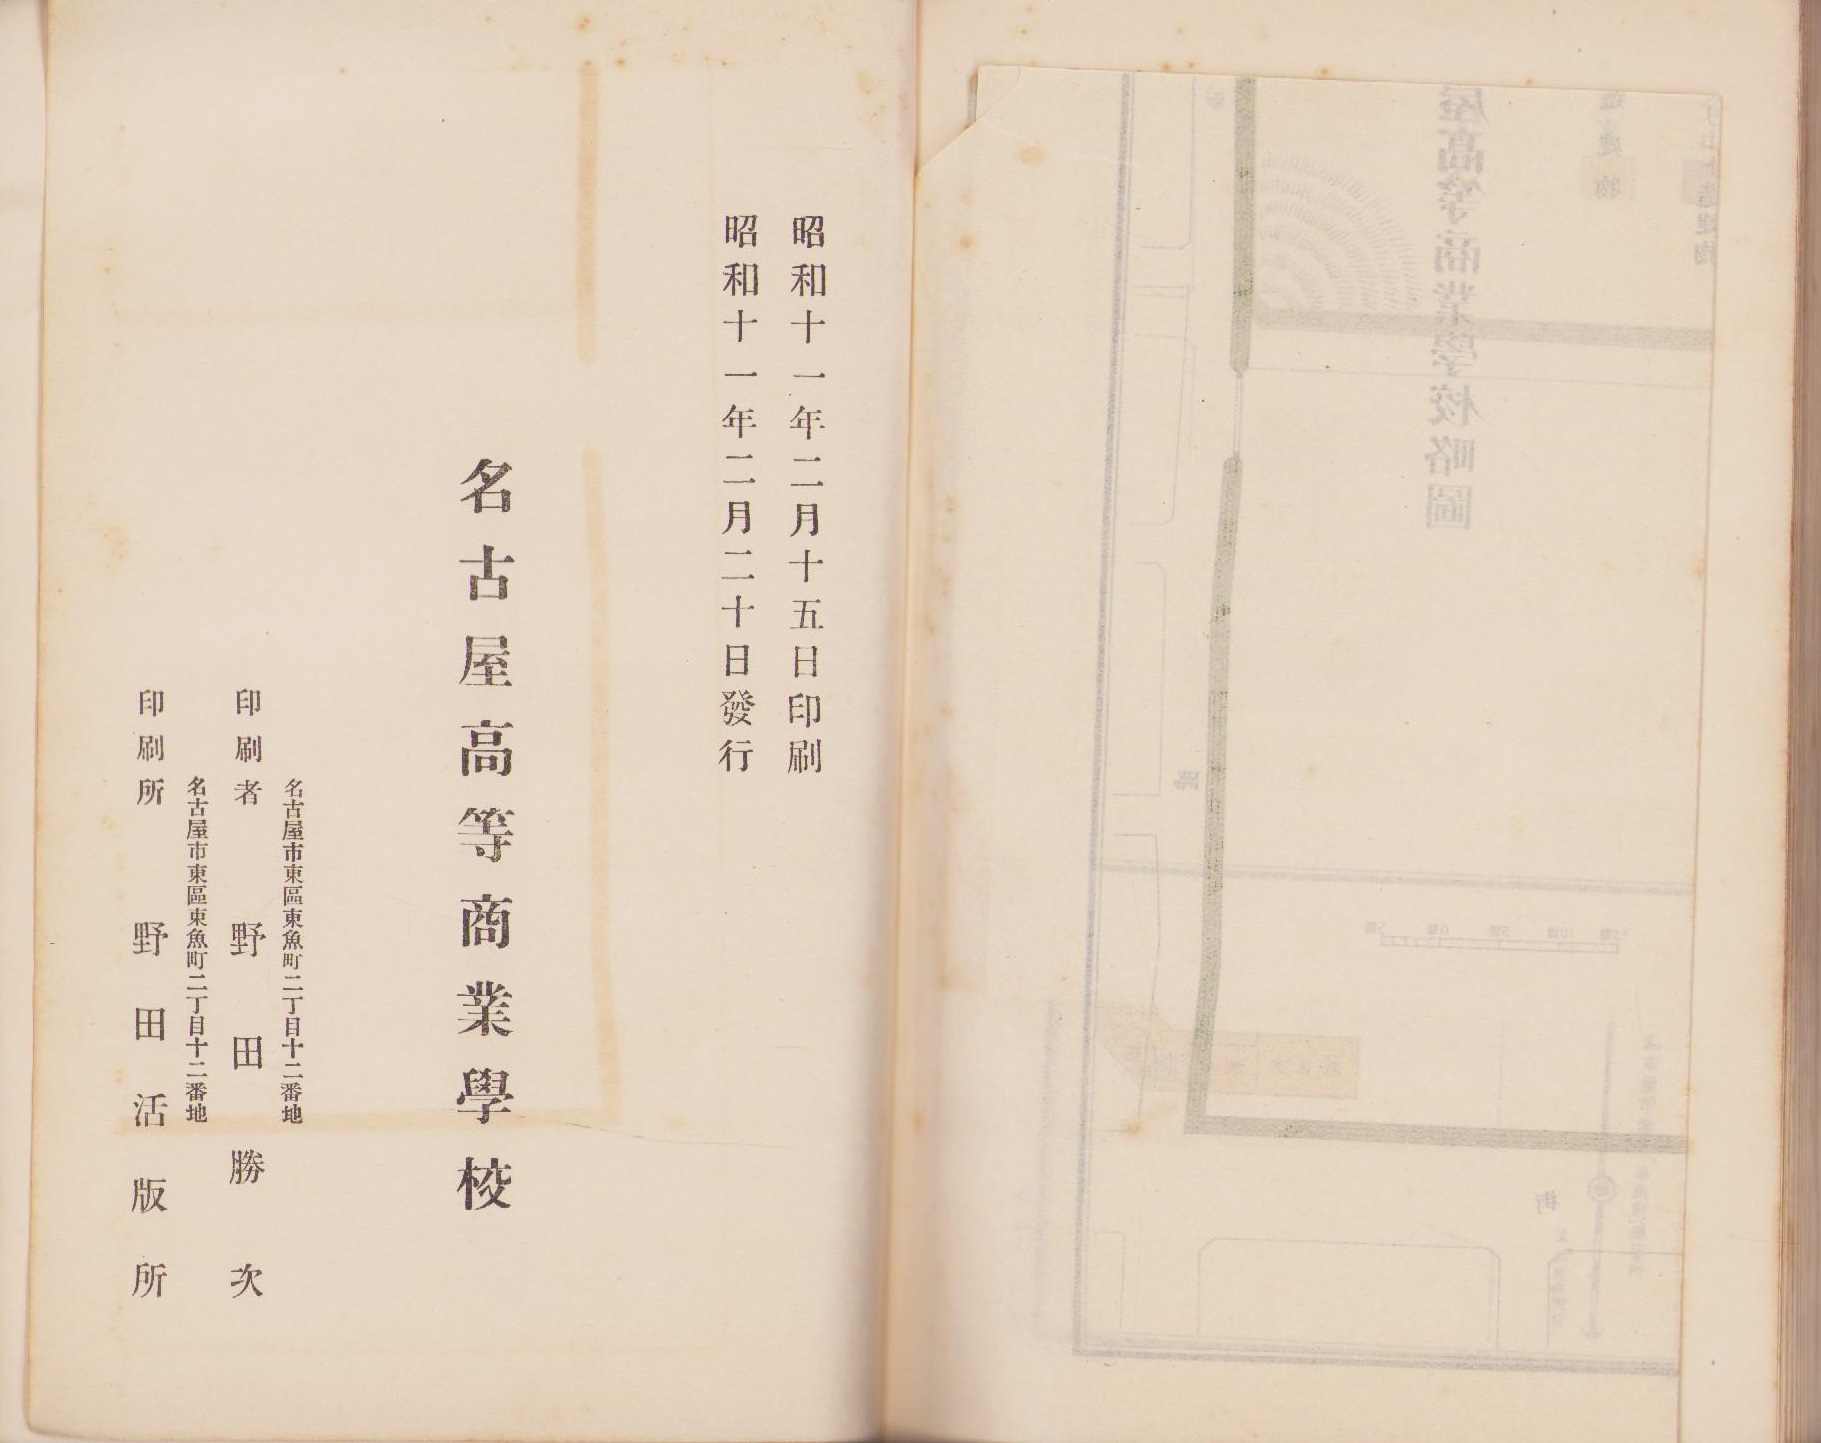 屋高等商業學校略圖
造建物
路
街
昭和十一年二月十五日印刷
昭和十一年二月二十日發行
名古屋高等商業學校
名古屋市東區東魚町二丁目十二番地
印刷者 野田勝次
名古屋市東區東魚町二丁目十二番地
印刷所 野田活版所